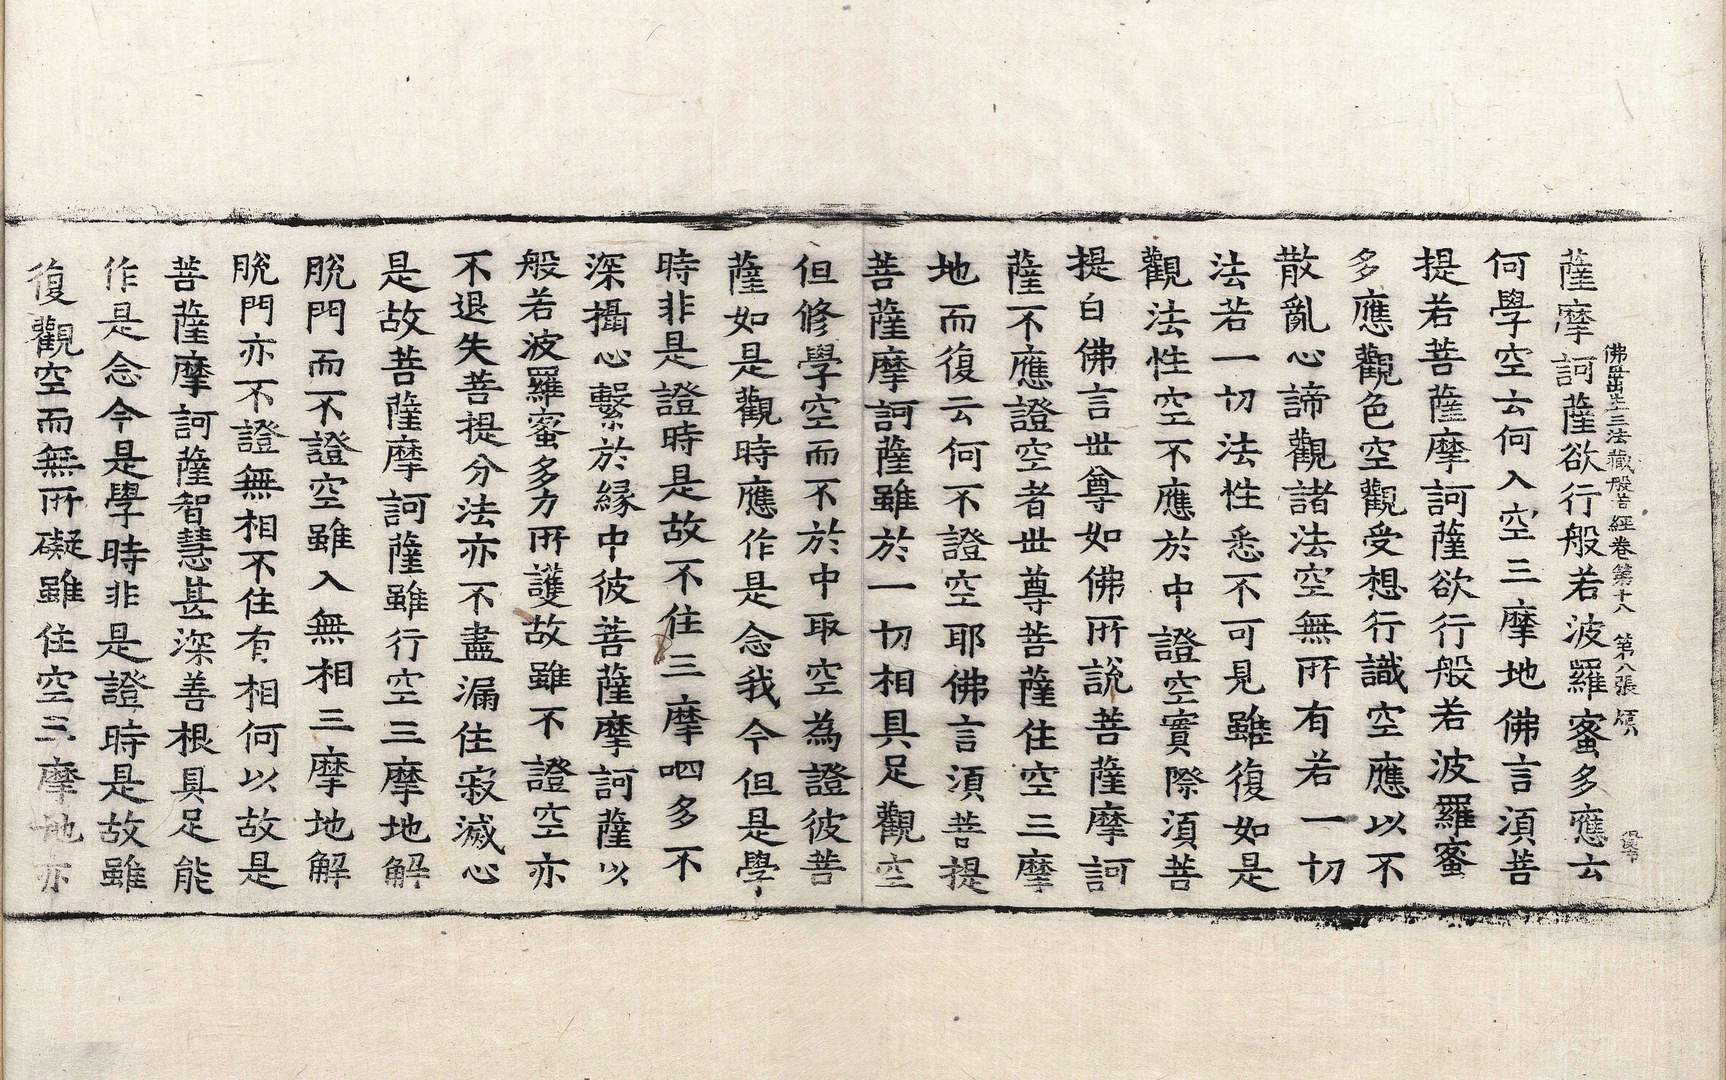 佛母出生三法藏般若經卷第十八 第八張 傾八
薩摩訶薩欲行般若波羅蜜多應云
何學空云何入空三摩地佛言須菩
提若菩薩摩訶薩欲行般若波羅蜜
多應觀色空觀受想行識空應以不
散亂心諦觀諸法空無所有若一切
法若一切法性悉不可見雖復如是
觀法性空不應於中證空實際須菩
提白佛言世尊如佛所說菩薩摩訶
薩不應證空者世尊菩薩住空三摩
地而復云何不證空耶佛言須菩提
菩薩摩訶薩雖於一切相具足觀空
但修學空而不於中取空為證彼菩
薩如是觀時應作是念我今但是學
時非是證時是故不住三摩呬多不
深攝心繫於緣中彼菩薩摩訶薩以
般若波羅蜜多力所護故雖不證空亦
不退失菩提分法亦不盡漏住寂滅心
是故菩薩摩訶薩雖行空三摩地解
脫門而不證空雖入無相三摩地解
脫門亦不證無相不住有相何以故是
菩薩摩訶薩智慧甚深善根具足能
作是念今是學時非是證時是故雖
復觀空而無所礙雖住空三摩地亦